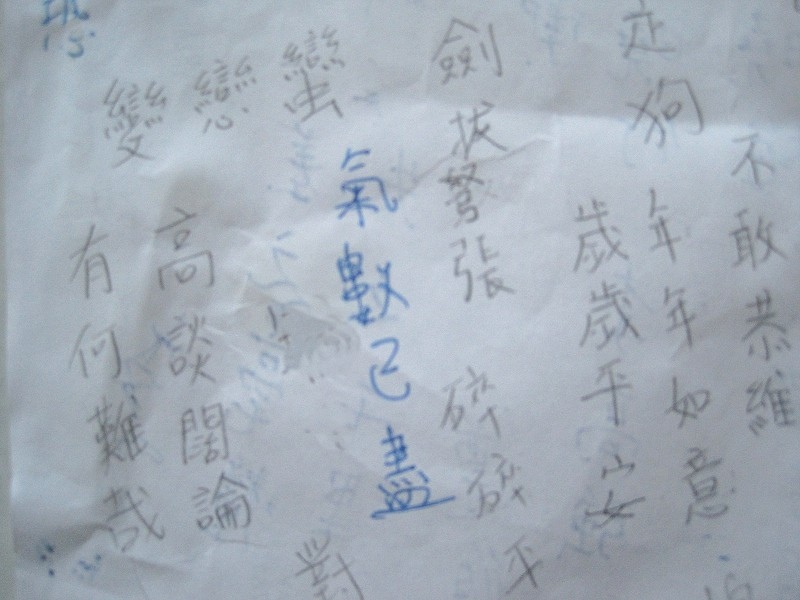 不敢恭維
走狗
年年如意
歲歲平安
劍拔弩張
碎碎平
氣數已盡
蠻
對
戀
高談闊論
變
有何難哉